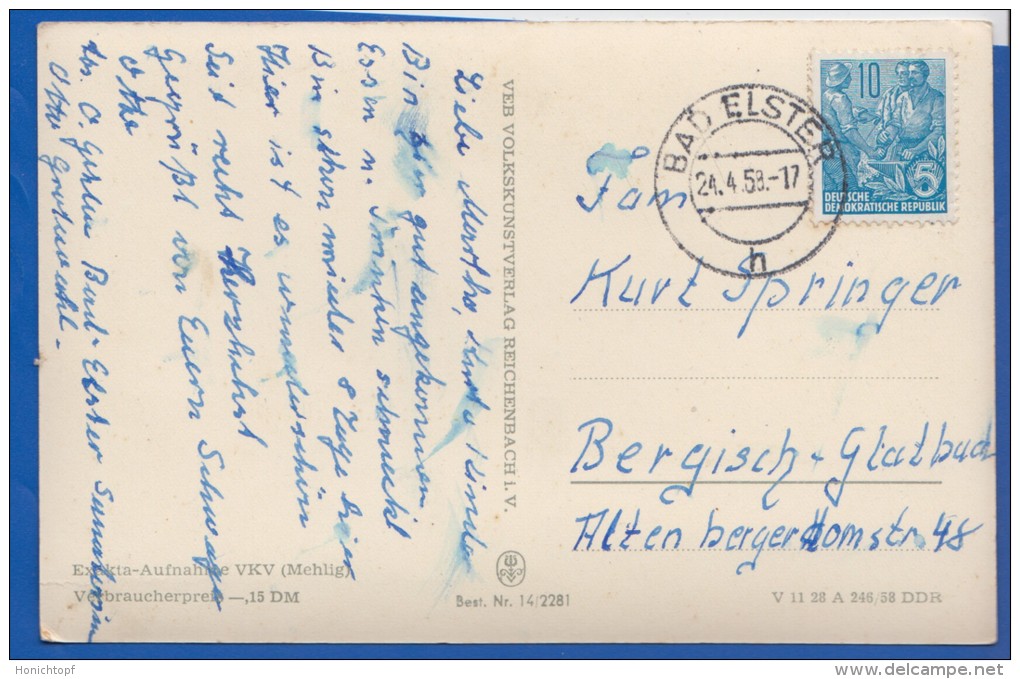 Liebe Martha, Kurt u. Kinder
Bin hier gut angekommen
Essen u. Trinken schmeckt
Bin schon wieder 8 Tage hier
Hier ist es wunderschön
Seid recht Herzlichst
Gegrüßt von Euern Schwager
Otto
Bad-Elster Sanatorium
Otto Grotewohl.
VEB VOLKSKUNSTVERLAG REICHENBACH i. V.
BAD ELSTER
24.4.58.-17
h
10
5
DEUTSCHE
DEMOKRATISCHE REPUBLIK
Fam
Kurt Springer
Bergisch-Glatbach
Altenbergerdomstr. 48
Exakta-Aufnahme VKV (Mehlig)
Verbraucherpreis —,15 DM
Best. Nr. 14/2281
V 11 28 A 246/58 DDR
Honichtopf
www.delcampe.net